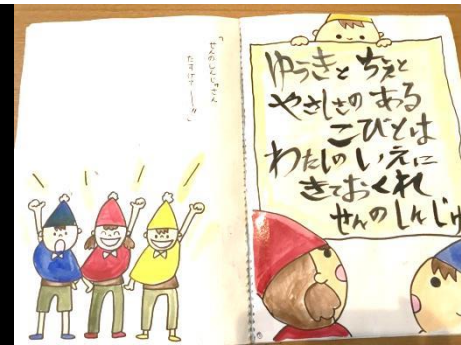 「せんのしんじゅさん
たすけて———!!」
ゆうきと ちえと
やさしさの ある
こびとは
わたしの いえに
きておくれ
せんの しんじゅ